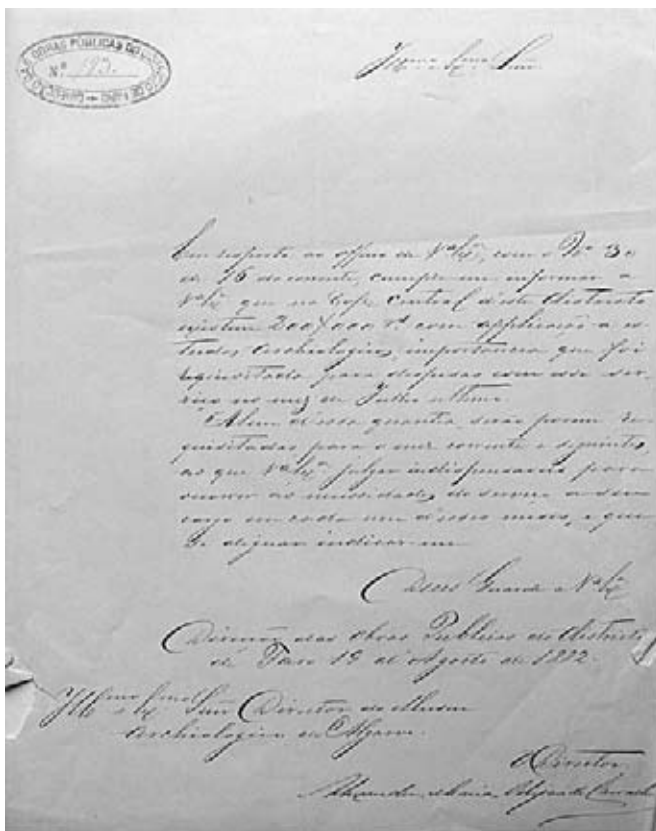 OBRAS PUBLICAS DO DISTRICTO DE FARO
Nº 193
Illmo e Exmo Snr
Em resposta ao officio de Vª Exª, com o Nº 30
de 16 do corrente, cumpre-me informar a
Vª Exª que no Cofre Central d'este districto
existem 200$000 rs com applicação a es-
tudos Archeologicos, importancia que foi
requisitada para despesas com esse ser-
viço no mez de Julho ultimo.
Alem d'essa quantia serão porem re-
quisitadas para o mez corrente e seguintes,
as que Vª Exª julgar indispensaveis para
occorrer ás necessidades do serviço a seu
cargo em cada um d'esses mezes, e que
se dignar indicar-me
Deos Guarde a Vª Exª
Direcção das Obras Publicas do districto
de Faro 19 de Agosto de 1882.
Illmo e Exmo Snr Director do Museu
Archeologico do Algarve.
O Director
Alexandre Maria